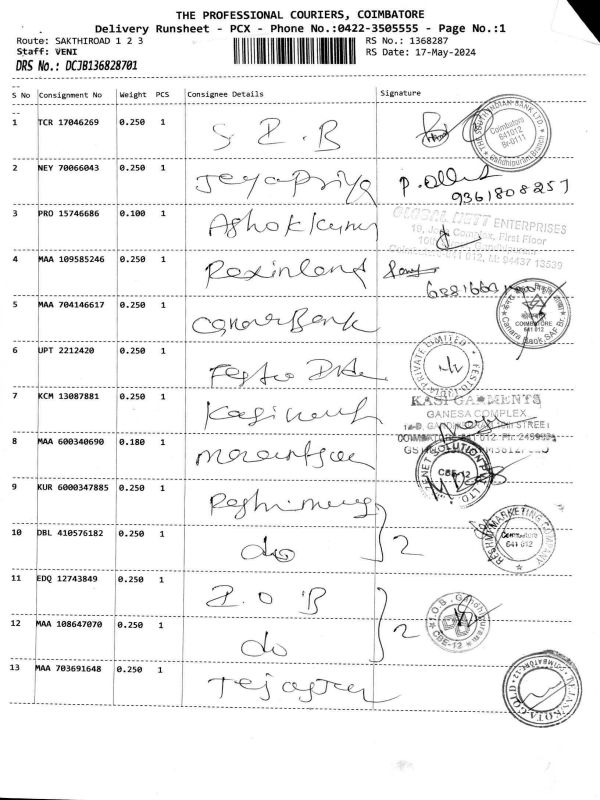 THE PROFESSIONAL COURIERS, COIMBATORE
Delivery Runsheet - PCX - Phone No.:0422-3505555 - Page No.:1
Route: SAKTHIROAD 1 2 3 RS No.: 1368287
Staff: VENI RS Date: 17-May-2024
DRS No.: DCJB136828701
S No Consignment No Weight PCS Consignee Details Signature
1 TCR 17046269 0.250 1 S I B
THE SOUTH INDIAN BANK LTD. Coimbatore 641012 Br-0111 Gandhipuram Branch
2 NEY 70066043 0.250 1 Jeyapriya
9361808257
3 PRO 15746686 0.100 1 Ashokkumar
GLOBAL NETT ENTERPRISES
First Floor
641 012, M: 94437 13539
4 MAA 109585246 0.250 1
5 MAA 704146617 0.250 1 canara Bank
COIMBATORE 641 012 Canara Bank, SAF Br.
6 UPT 2212420 0.250 1 Festo
PRIVATE LIMITED
7 KCM 13087881 0.250 1
KASI GARMENTS
GANESA COMPLEX
8 MAA 600340690 0.180 1
CBE-12
9 KUR 6000347885 0.250 1
10 DBL 410576182 0.250 1 do 2
RESHMI MARKETING COMPANY Coimbatore 641 012
11 EDQ 12743849 0.250 1 I O B
I.O.B. Gandhipuram CBE-12
12 MAA 108647070 0.250 1 do 2
13 MAA 703691648 0.250 1
COIMBATORE-12